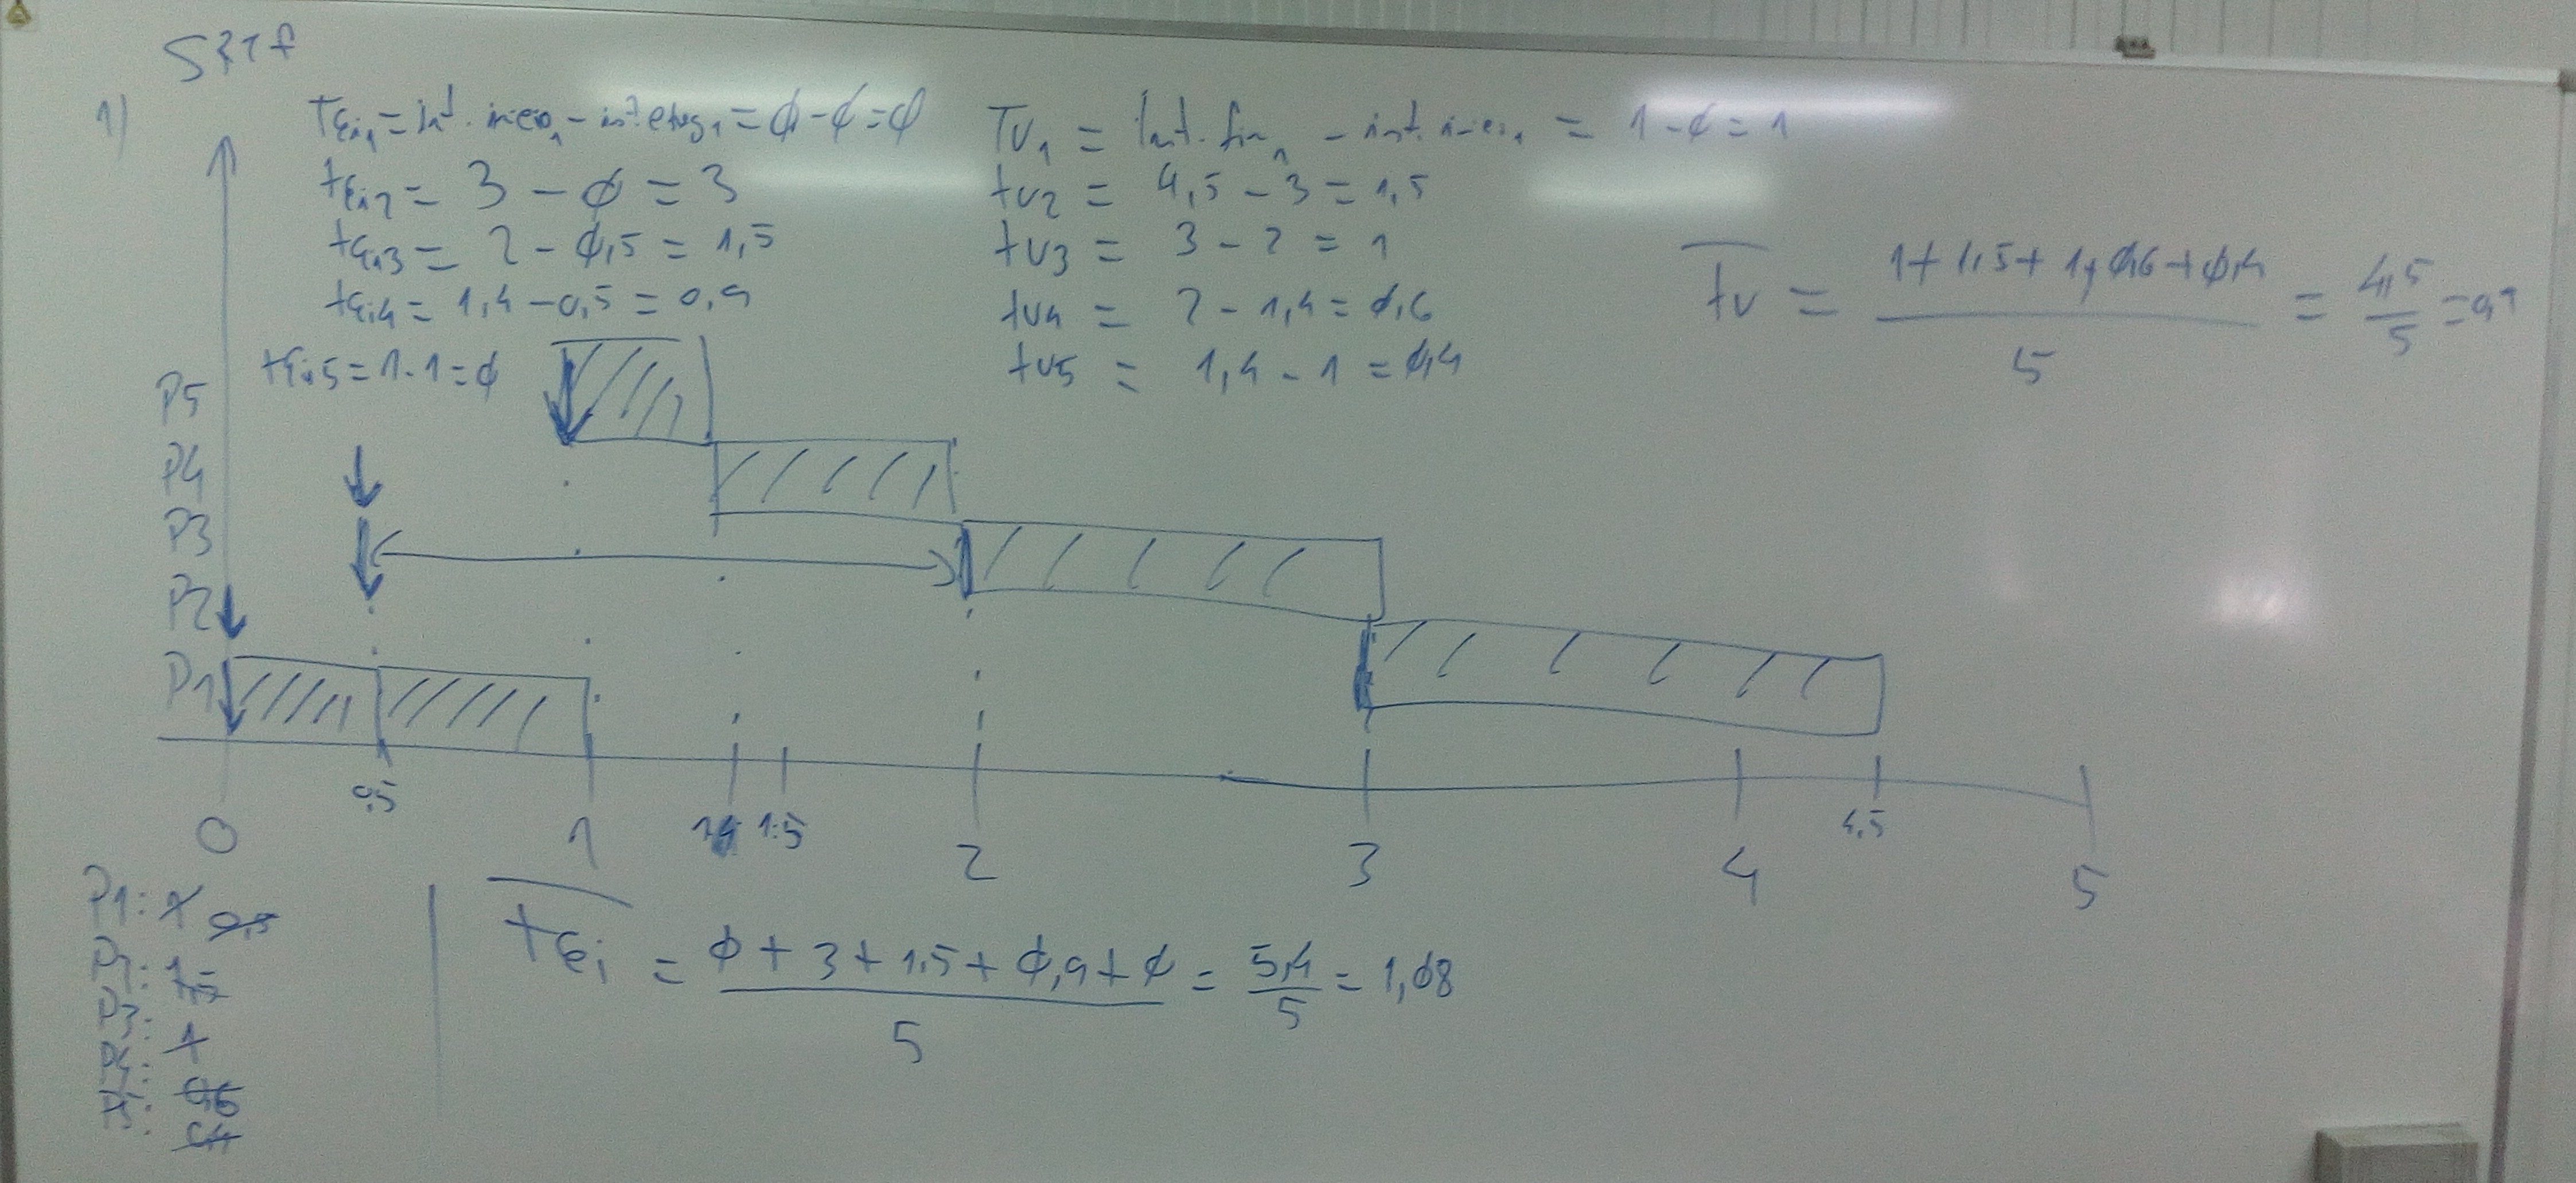 SRTF
1)
tei1 = inst. inicio1 - inst. = ϕ - ϕ = ϕ
tei2 = 3 - ϕ = 3
tei3 = 2 - ϕ,5 = 1,5
tei4 = 1,4 - 0,5 = 0,9
tei5 = 1-1 = ϕ
Tv1 = Inst. fin1 - inst. inicio1 = 1 - ϕ = 1
tv2 = 4,5 - 3 = 1,5
tv3 = 3 - 2 = 1
tv4 = 2 - 1,4 = ϕ,6
tv5 = 1,4 - 1 = ϕ,4
tv = 1 + 1,5 + 1 + ϕ,6 + ϕ,4 / 5 = 4,5 / 5 = 0,9
P5
P4
P3
P2
P1
0 0,5 1 1,4 1.5 2 3 4 4,5 5
P1: 1 0,5
P2: 1,5
P3: 1
P4: 0,6
P5: 0,4
tei = ϕ + 3 + 1,5 + ϕ,9 + ϕ / 5 = 5,4 / 5 = 1,ϕ8